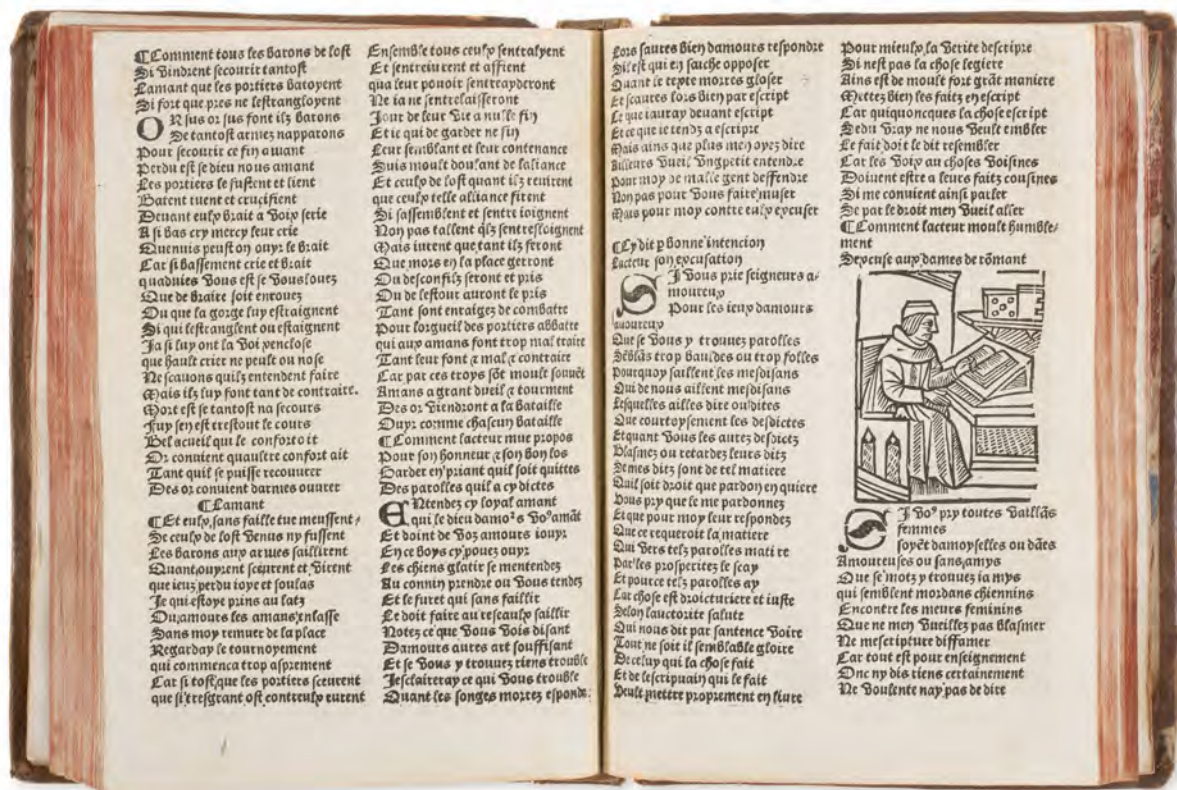 ¶Comment tous les barons de lost
Si vindrent secourir tantost
Lamant que les portiers batoyent
Si fort que pres ne lestrangloyent
OR sus or sus font ilz barons
De tantost armez napparons
Pour secourir ce fin amant
Perdu est se dieu nous amant
Les portiers le fustent et lient
Batent tuent et crucifient
Deuant eulx brait a voix serie
A si bas cry mercy leur crie
Quenuis peust on ouyr le brait
Car si bassement crie et brait
quaduies vous est se vous louez
Que de braire soit enrouez
Ou que la gorge luy estraignent
Si qui lestranglent ou estaignent
Ja si luy ont la voix enclose
que hault crier ne peult ou nose
Ne scauons quilz entendent faire
Mais ilz luy font tant de contraire.
Mort est se tantost na secours
Fuy sen est trestout le cours
Bel acueil qui le confortoit
Or conuient quaultre confort ait
Tant quil se puisse recouurer
Des or conuient darmes ouurer
¶Lamant
¶Et eulx sans faille tue meussent
Se ceulx de lost venus ny fussent
Les barons aux armes saillirent
Quant ouyrent sceurent et virent
que ieuz perdu ioye et soulas
Je qui estoye prins au latz
Ou amours les amans enlasse
Sans moy remuer de la place
Regarday le tournoyement
qui commenca trop asprement
Car si tost que les portiers sceurent
que si tresgrant ost contreulx eurent
Ensemble tous ceulx sentralyent
Et sentreiurent et affient
qua leur pouoir sentrayderont
Ne ia ne sentrelaisseront
Jour de leur vie a nulle fin
Et ie qui de garder ne fin
Leur semblant et leur contenance
Suis moult doulant de laliance
Et ceulx de lost quant ilz reuirent
que ceulx telle alliance firent
Si sassemblent et sentre ioignent
Non pas tallent qlz sentresloignent
Mais iurent que tant ilz feront
Que mors en la place gerront
Ou desconfilz seront et pris
Ou de lestour auront le pris
Tant sont enraigez de combatre
Pour lorgueil des portiers abbatre
qui aux amans font trop mal traire
Tant leur font & mal & contraire
Car par ces troys sõt moult souuẽt
Amans a grant dueil & tourment
Des or viendront a la bataille
Ouyr comme chascun bataille
¶Comment lacteur mue propos
Pour son honneur & son bon los
Garder en priant quil soit quittes
Des parolles quil a cy dictes
ENtendez cy loyal amant
qui le dieu damo²s vo⁹ amãt
Et doint de voz amours iouyr
En ce boys cy pouez ouyr
Les chiens glatir se mentendez
Au connin prendre ou vous tendez
Et le furet qui sans faillir
Le doit faire au reseaulx saillir
Notez ce que vous vois disant
Damours aures art souffisant
Et se vous y trouuez riens trouble
Jesclaireray ce qui vous trouble
Quant les songes morrez esponde:
Lors saures bien damours respondre
Sil est qui en saiche opposer
Quant le texte morres gloser
Et scaures lors bien par escript
Ce que iauray deuant escript
Et ce que ie tendz a escripre
Mais ains que plus men oyez dire
Ailleurs vueil vngpetit entendre
Pour moy de malle gent deffendre
Non pas pour vous faire muser
Mais pour moy contre eulx excuser
¶Cy dit p bonne intencion
Lacteur son excusation
SI vous prie seigneurs a-
moureux
Pour les ieux damours
amoureux
Que se vous y trouuez parolles
Sẽblãs trop baudes ou trop folles
Pourquoy saillent les mesdisans
Qui de nous aillent mesdisans
Lesquelles ailles dire ou dites
Que courtoysement les desdictes
Et quant vous les aurez desdictz
Blasmez ou retardez leurs ditz
Se mes ditz sont de tel matiere
Quil soit droit que pardon en quiere
Vous pry que le me pardonnez
Et que pour moy leur respondez
Que ce requeroit la matiere
Qui vers telz parolles mati re
Par les prosperitez le scay
Et pource telz parolles ay
Car chose est droicturiere et iuste
Selon lauctorite saluste
Qui nous dit par santence voire
Tout ne soit il semblable gloire
De celuy qui la chose fait
Et de lescripuain qui le fait
Veult mettre proprement en liure
Pour mieulx la verite descripre
Si nest pas la chose legiere
Ains est de moult fort grãt maniere
Mettez bien les faitz en escript
Car quiquoncques la chose escript
Se du vray ne nous veult embler
Le fait doit le dit resembler
Car les voix au choses voisines
Doiuent estre a leurs faitz cousines
Si me conuient ainsi parler
Se par le droit men vueil aller
¶Comment lacteur moult humble-
ment
Sexcuse aux dames de rõmant
SI vo⁹ pry toutes vaillãs
femmes
soyẽt damoyselles ou dães
Amoureuses ou sans amys
Que se motz y trouuez ia mys
qui semblent mordans chiennins
Encontre les meurs feminins
Que ne men vueillez pas blasmer
Ne mescripture diffamer
Car tout est pour enseignement
Onc ny dis riens certainement
Ne voulente nay pas de dire